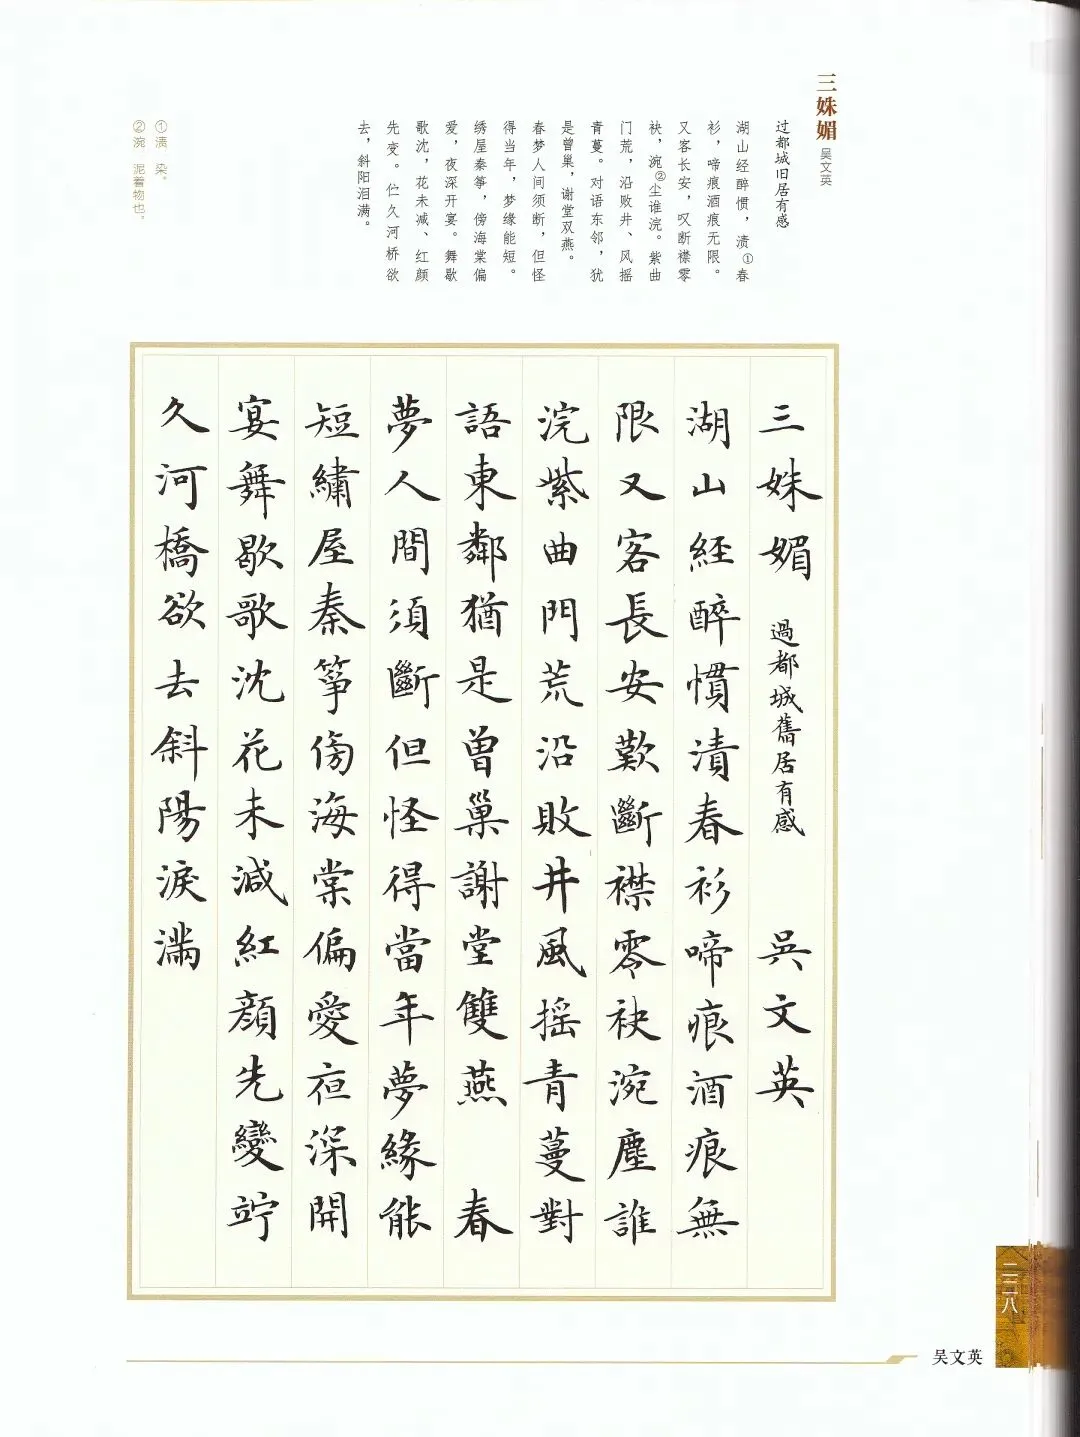 三姝媚 吴文英
过都城旧居有感
湖山经醉惯，渍①春
衫，啼痕酒痕无限。
又客长安，叹断襟零
袂，涴②尘谁浣。紫曲
门荒，沿败井、风摇
青蔓。对语东邻，犹
是曾巢，谢堂双燕。
春梦人间须断，但怪
得当年，梦缘能短。
绣屋秦筝，傍海棠偏
爱，夜深开宴。舞歇
歌沈，花未减、红颜
先变。伫久河桥欲
去，斜阳泪满。
①渍 染。
②涴 泥着物也。
三姝媚 過都城舊居有感 吳文英
湖山經醉慣漬春衫啼痕酒痕無
限又客長安歎斷襟零袂涴塵誰
浣紫曲門荒沿敗井風摇青蔓對
語東鄰猶是曾巢謝堂雙燕 春
夢人間須斷但怪得當年夢緣能
短繡屋秦筝傍海棠偏愛夜深開
宴舞歇歌沈花未減紅顔先變竚
久河橋欲去斜陽淚滿
二二八
吴文英